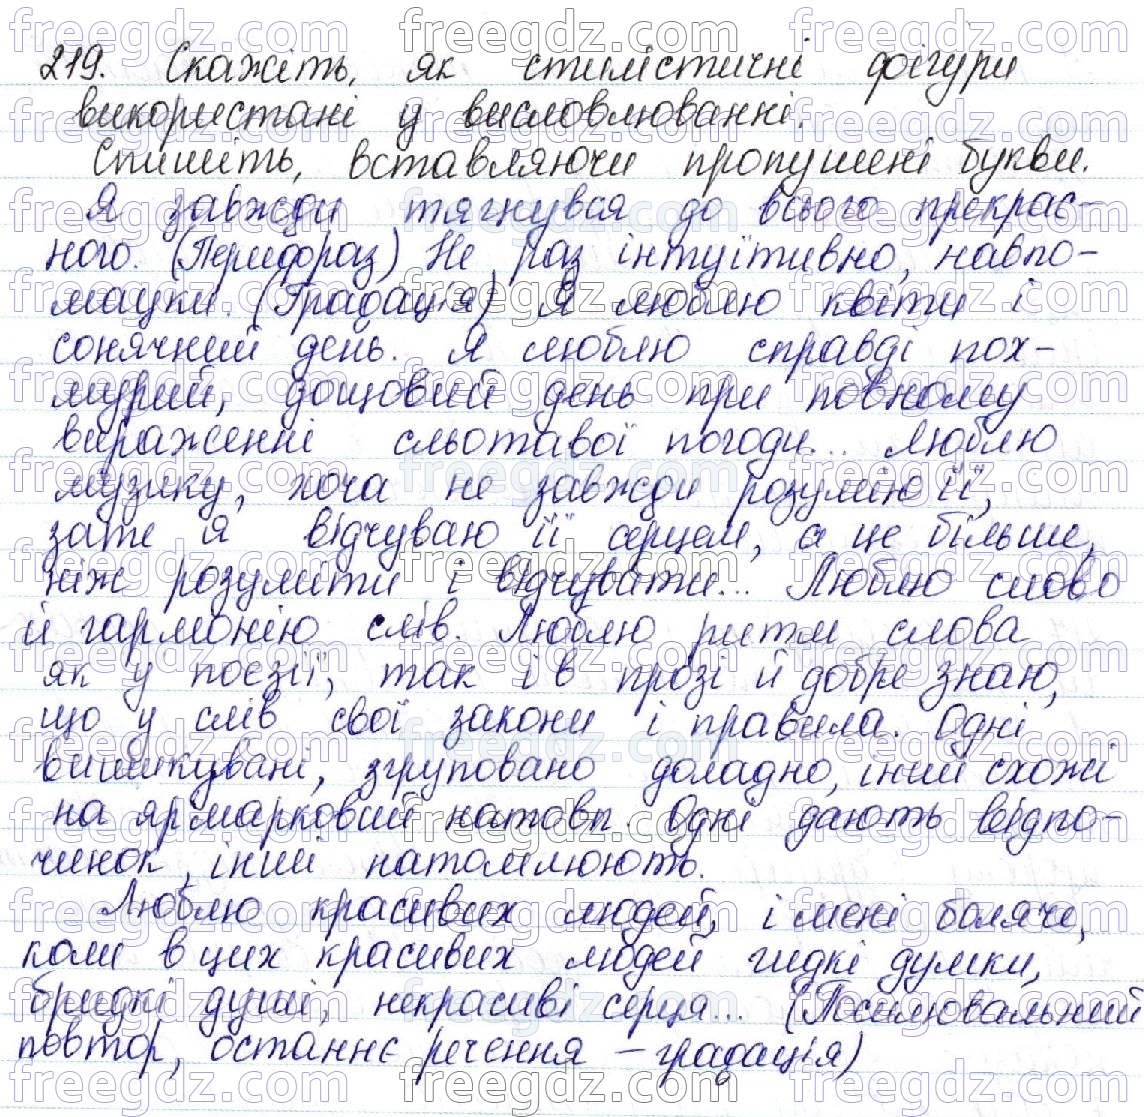 219. Скажіть, як стилістичні фігури
використані у висловлюванні.
Спишіть, вставляючи пропущені букви.
Я завжди тягнувся до всього прекрас-
ного. (Перифраз) Не раз інтуїтивно, навпо-
мацки. (Градація) Я люблю квіти і
сонячний день. Я люблю справді пох-
мурий, дощовий день при повному
вираженні сльотавої погоди... Люблю
музику, хоча не завжди розумію її,
зате я відчуваю її серцем, а це більше,
ніж розуміти і відчувати... Люблю слово
й гармонію слів. Люблю ритм слова
як у поезії, так і в прозі й добре знаю,
що у слів свої закони і правила. Одні
вишикувані, згруповано доладно, інші схожі
на ярмарковий натовп. Одні дають відпо-
чинок, інші натомлюють.
Люблю красивих людей, і мені боляче,
коли в цих красивих людей гидкі думки,
бридкі душі, некрасиві серця... (Посилювальний
повтор, останнє речення – градація)